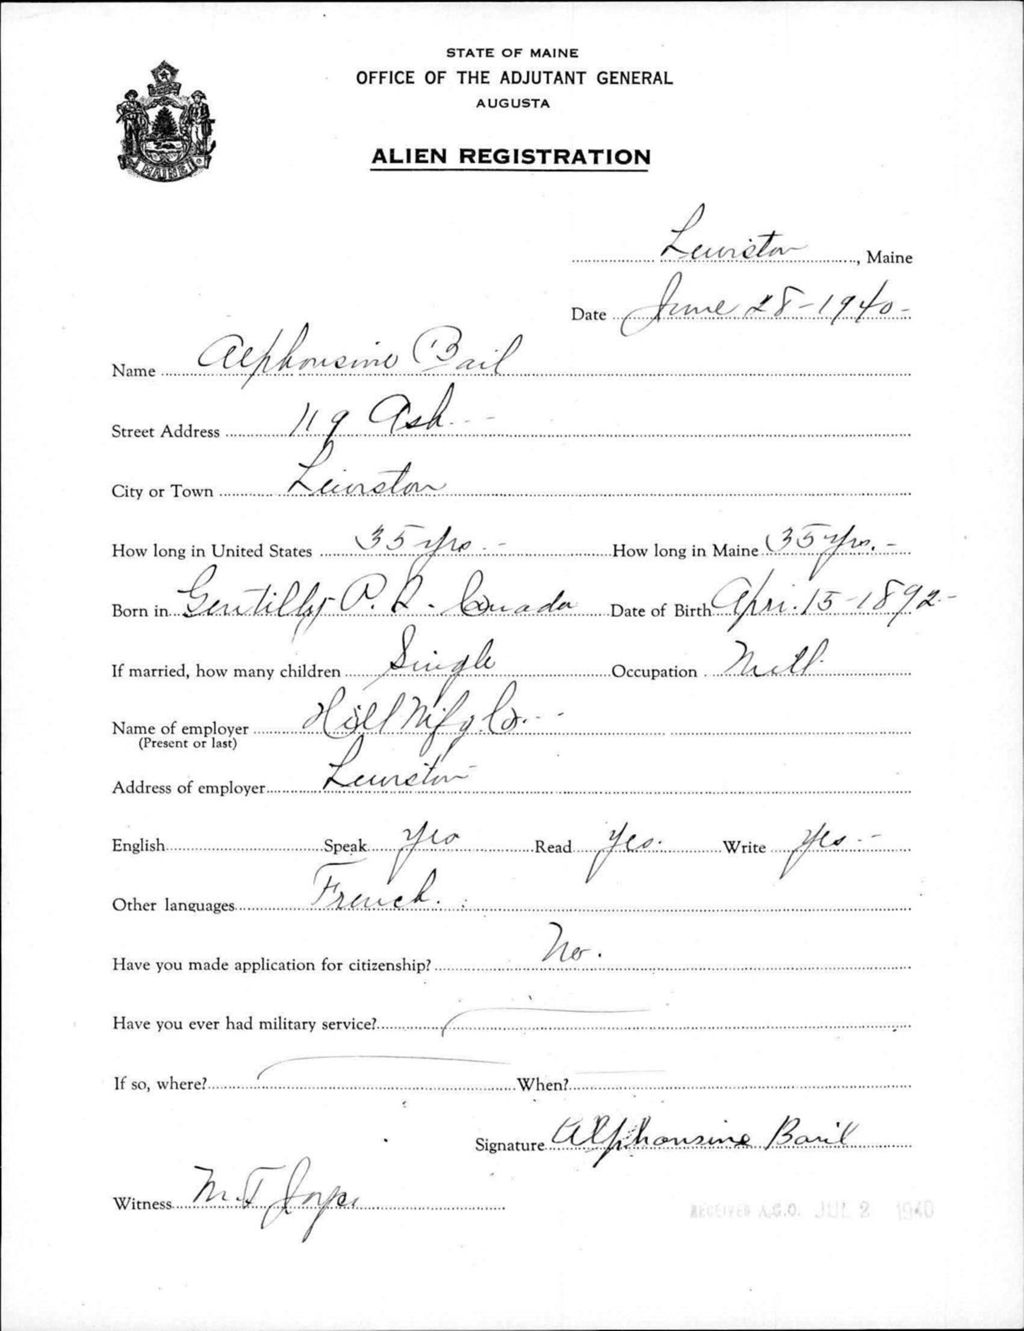 STATE OF MAINE
OFFICE OF THE ADJUTANT GENERAL
AUGUSTA
MAINE
ALIEN REGISTRATION
Lewiston, Maine
Date June 28-1940-
Name Alphonsine Bail
Street Address 119 Ash
City or Town Lewiston
How long in United States 35 yrs - How long in Maine 35 yrs. -
Born in Gentilly P. Q. Canada Date of Birth Apri. 15-1892-
If married, how many children Single Occupation Mill
Name of employer Hill Mfg Co. -
(Present or last)
Address of employer Lewiston
English Speak Yes Read Yes. Write Yes -
Other languages French.
Have you made application for citizenship? No.
Have you ever had military service?
If so, where? When?
Signature Alphonsine Baril
Witness M. T.
RECEIVED A.G.O. JUL 2 1940